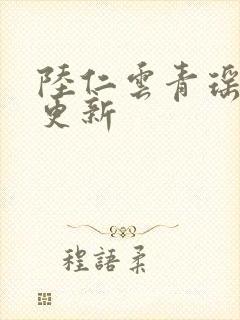 陸仁雲青瑶
更新
程語柔